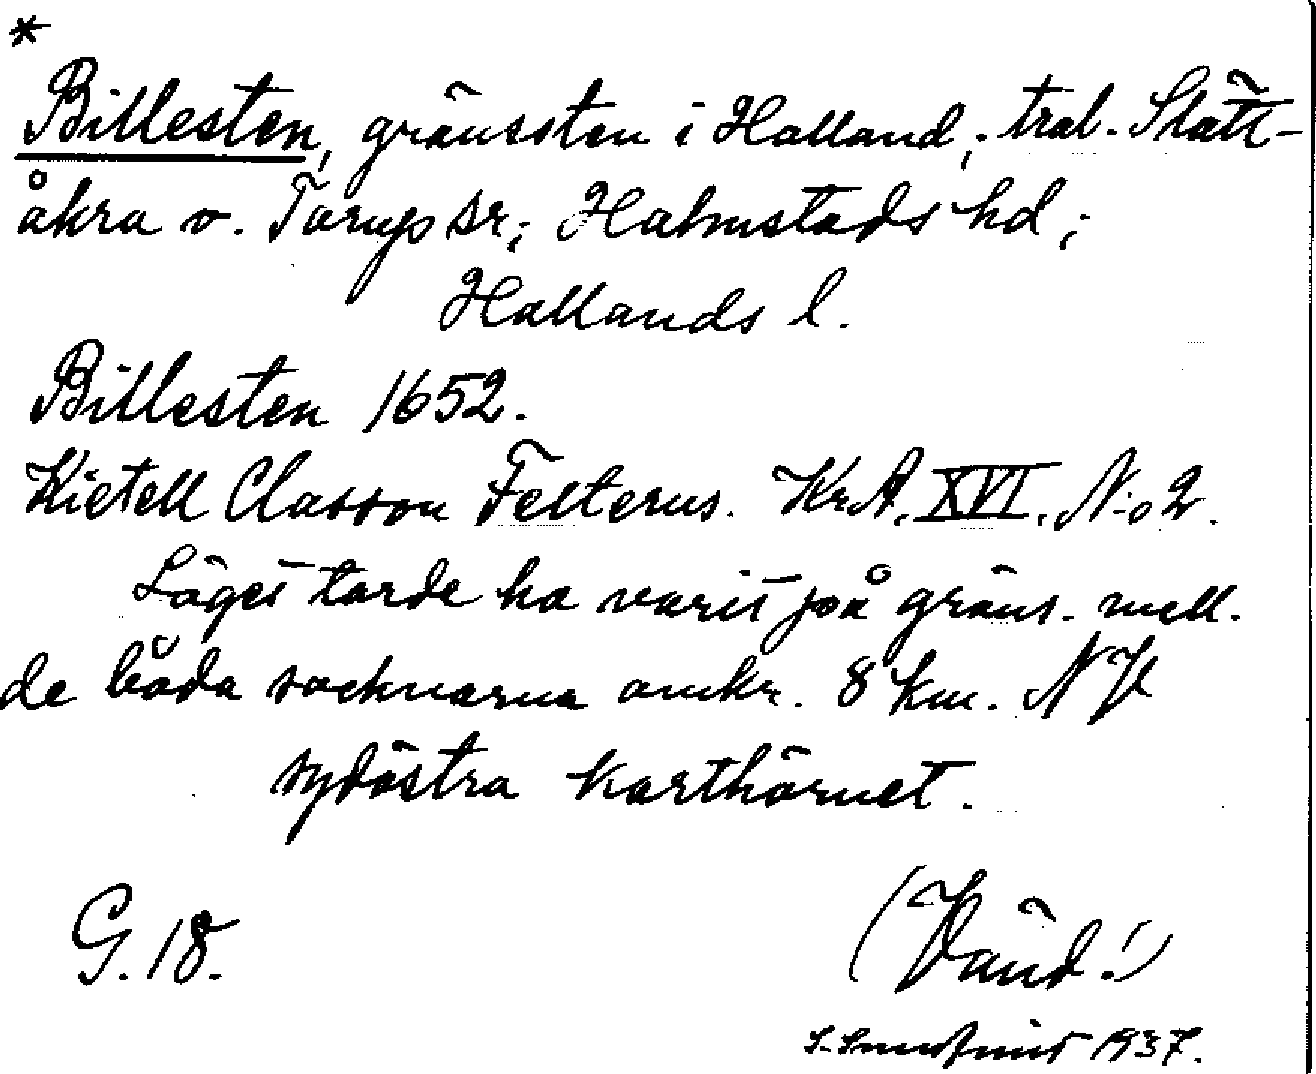 *
Billesten, gränssten i Halland; trol. Slätt-
åkra v. Torups sr; Halmstads hd;
Hallands l.
Billesten 1652.
Kietell Classon Felterus. KrA. XVI. N:o 2.
Läget torde ha varit på gräns. mell.
de båda socknarna omkr. 8 km. NV
sydöstra karthörnet.
G. 18.
(Vänd!)
1937.